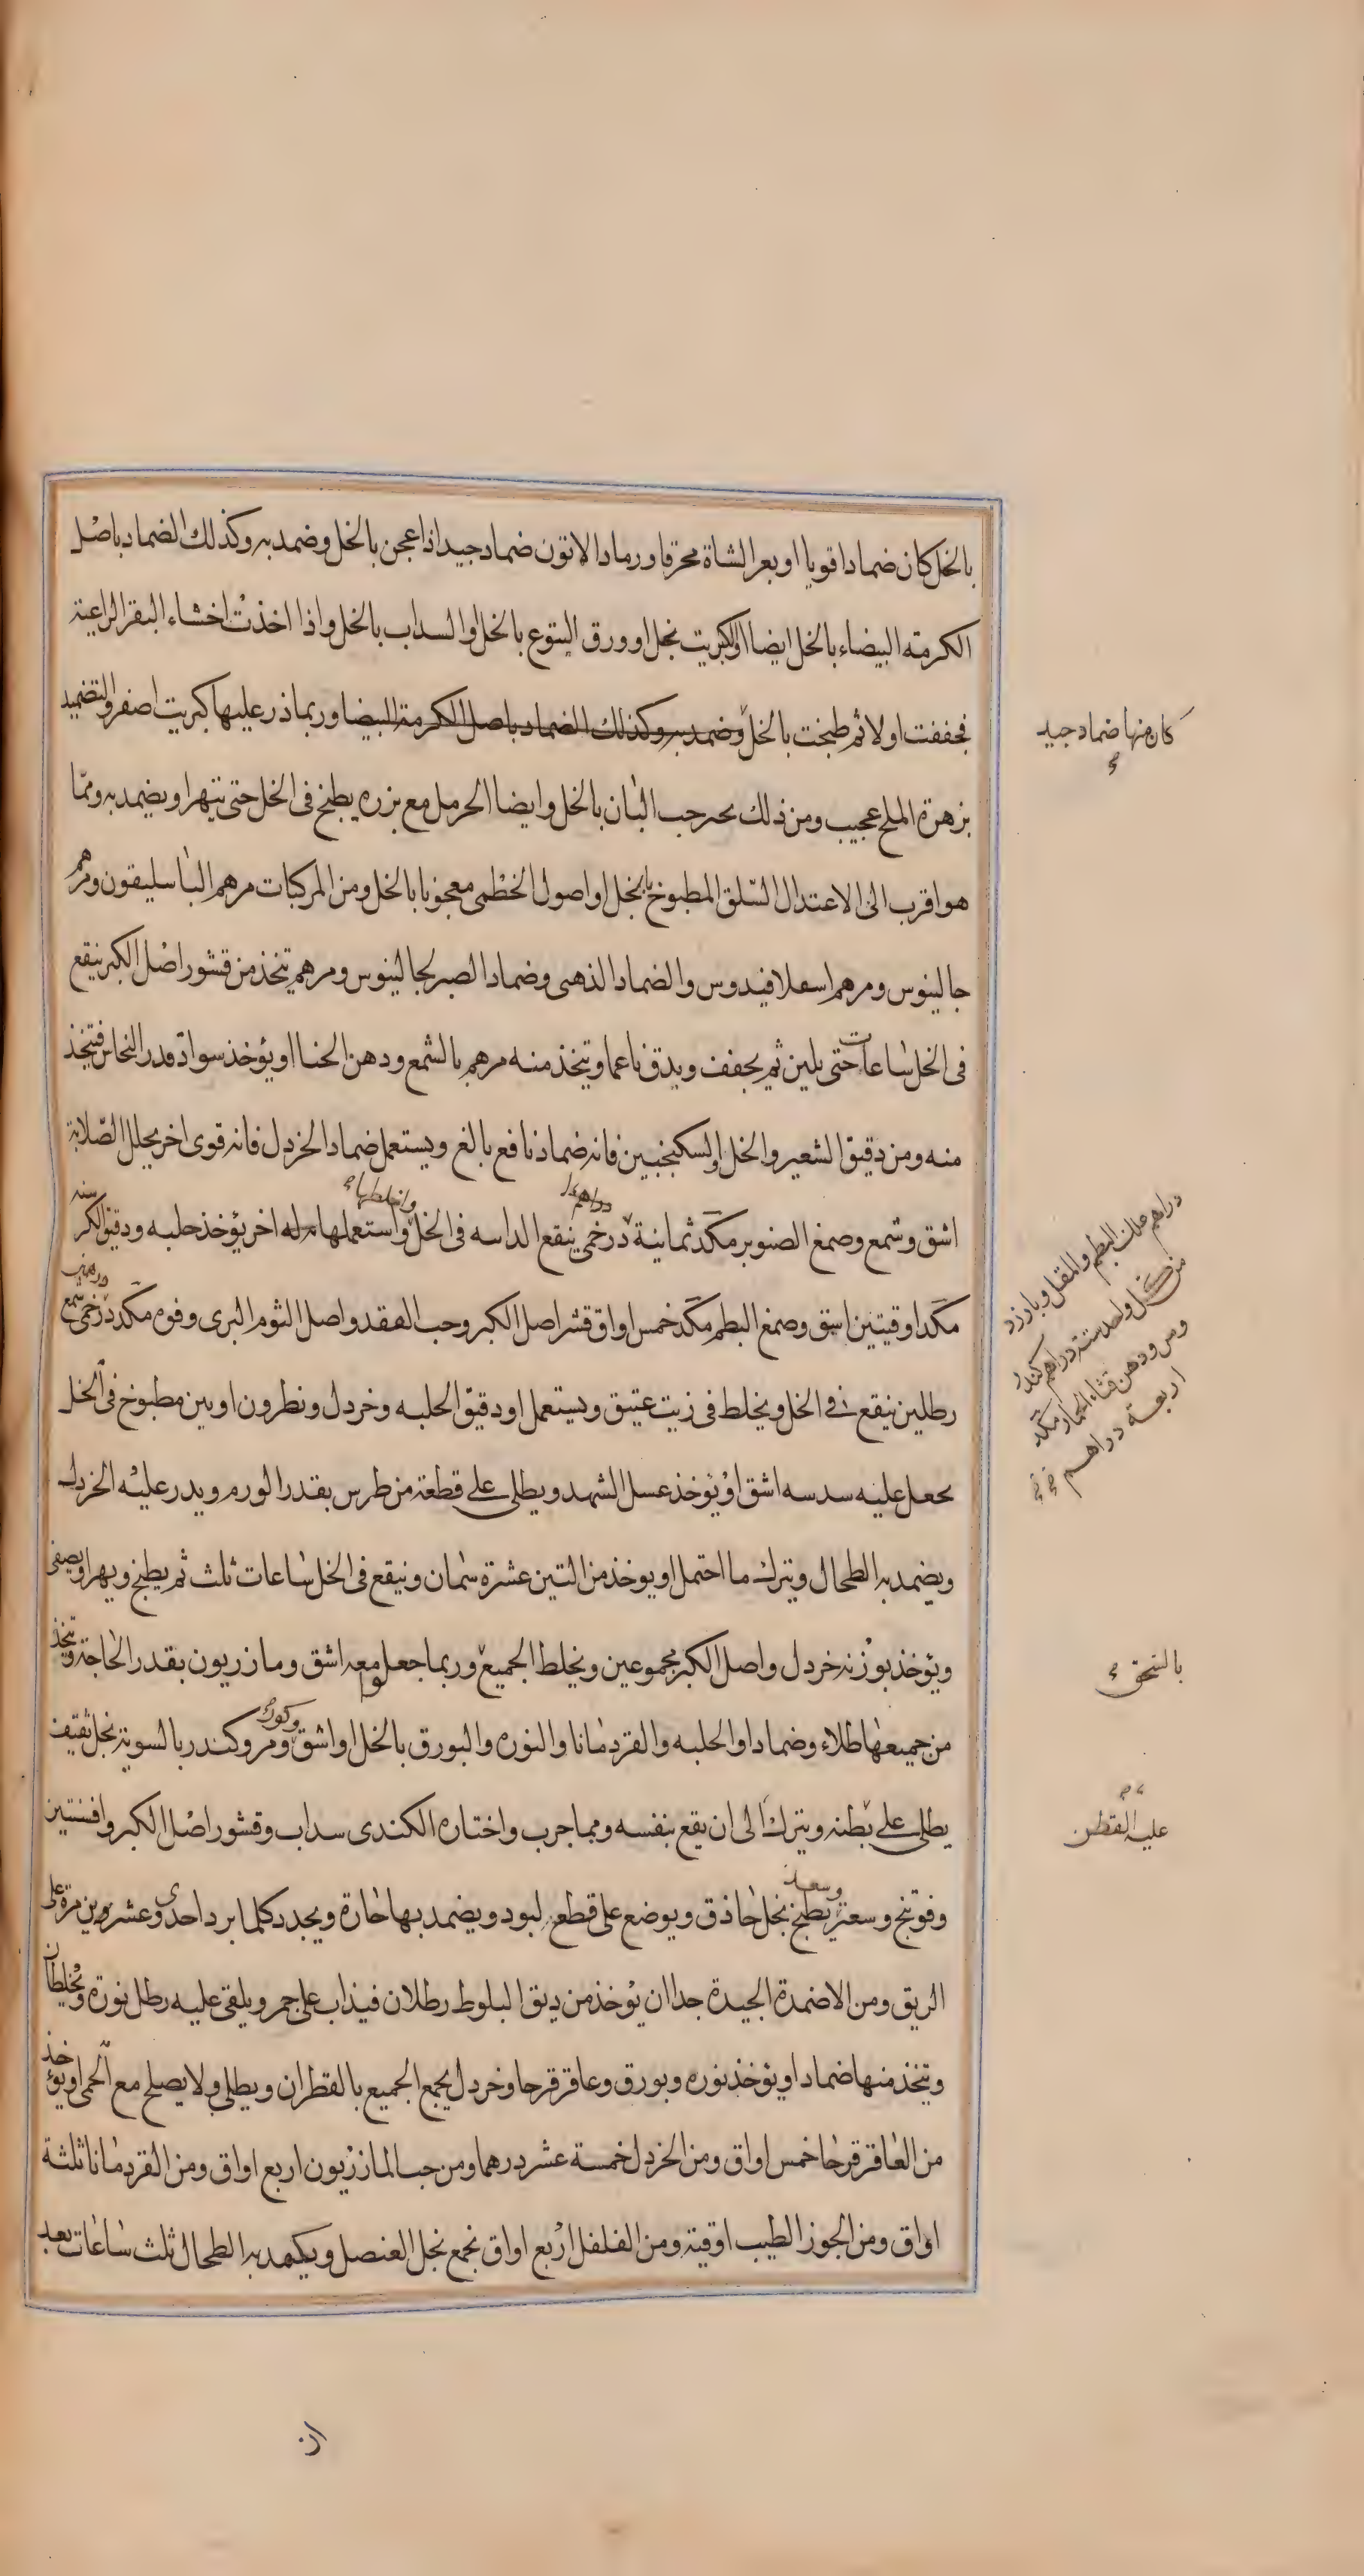 بالخل كان ضمادا قويا او بعر الشاة محرقا ورماد الاتون ضماد جيد اذا عجن بالخل وضمد به وكذلك الضماد باصل
الكرمة البيضاء بالخل ايضا او الكبريت بخل او ورق اليتوع بالخل او السداب بالخل واذا اخذت اخشاء البقر الراعية
فجففت اولا ثم طبخت بالخل وضمد به وكذلك الضماد باصل الكرمة البيضا وربما ذر عليها كبريت اصفر والتضميد
كان منها ضماد جيد
بزهرة الملح عجيب ومن ذلك حب البان بالخل وايضا الحرمل مع بزره يطبخ في الخل حتى يتهرا ويضمد به ومما
هو اقرب الى الاعتدال السلق المطبوخ بالخل او اصول الخطمى معجونا بالخل ومن المركبات مرهم الباسليقون ومرهم
جالينوس ومرهم اسعلافيدوس والضماد الذهبى وضماد الصبر لجالينوس ومرهم يتخذ من قشور اصل الكبر ينقع
فى الخل ساعات حتى يلين ثم يجفف ويدق ناعما ويتخذ منه مرهم بالشمع ودهن الحنا او يؤخذ سواد قدر النحاس فيتخذ
منه ومن دقيق الشعير والخل او السكنجبين فانه ضماد نافع بالغ ويستعمل ضماد الخردل فانه قوى اخر يحلل الصلابة
اشق وشمع وصمغ الصنوبر مكد ثمانية درخمى ينقع الداسه فى الخل واستعملها اخر يؤخذ حلبه ودقيق الكرسنه
دراهم
واخلطها
مكد اوقيتين اشق وصمغ البطم مكد خمس اواق قشر اصل الكبر وحب الفقد واصل الثوم البرى وفوه مكد درخمى شمع
دراهم علك البطم والمقل وبارزد
من كل واحد ستة دراهم كندر
ومر ودهن قثاء الحمار مكد
اربعة دراهم
رطلين ينقع فى الخل ويخلط فى زيت عتيق ويستعمل او دقيق الحلبه وخردل ونطرون او تين مطبوخ فى الخل
يجعل عليه سدسه اشق او يؤخذ عسل الشهد ويطلى على قطعة من طرس بقدر الورم ويذر عليه الخردل
ويضمد به الطحال ويترك ما احتمل او يوخذ من التين عشرة سمان وينقع فى الخل ساعات ثلث ثم يطبخ ويهرا ويصفى
ويؤخذ بوزنه خردل واصل الكبر مجموعين ويخلط الجميع وربما جعل معه اشق ومازريون بقدر الحاجة ويتخذ
بالسحق
من جميعها طلاء وضمادا او الحلبه والقردمانا والنوره والبورق بالخل او اشق ومر وكندر بالسوية بخل ثقيف
يطلى على بطنه ويترك الى ان يقع بنفسه ومما جرب واختاره الكندى سداب وقشور اصل الكبر وافسنتين
عليه القطن
وفوتنج وسعتر يطبخ بخل حاذق ويوضع على قطع لبود ويضمد بها حارة ويجدد كلما برد احدى وعشرين مرة على
الريق ومن الاضمدة الجيدة جدا ان يؤخذ من دبق البلوط رطلان فيذاب على جمر ويلقى عليه رطل نورة ويخلطان
ويتخذ منها ضماد او يؤخذ نوره وبورق وعاقرقرحا وخردل يجمع الجميع بالقطران ويطلى به ولا يصلح مع الحمى او يؤخذ
من العاقرقرحا خمس اواق ومن الخردل خمسة عشر درهما ومن حب المازريون اربع اواق ومن القردمانا ثلثة
اواق ومن الجوز الطيب اوقية ومن الفلفل اربع اواق يجمع بخل العنصل ويكمد به الطحال ثلث ساعات بعد
ان